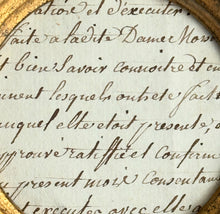 ration et d'executer
faite a ladite Dame Mo
t bien savoir connoitre et en
nnent lesquels ont ete fait
auquel elle etoit presente,
approuve ratiffié et confirm
u present mois consentant
et executer avec elle